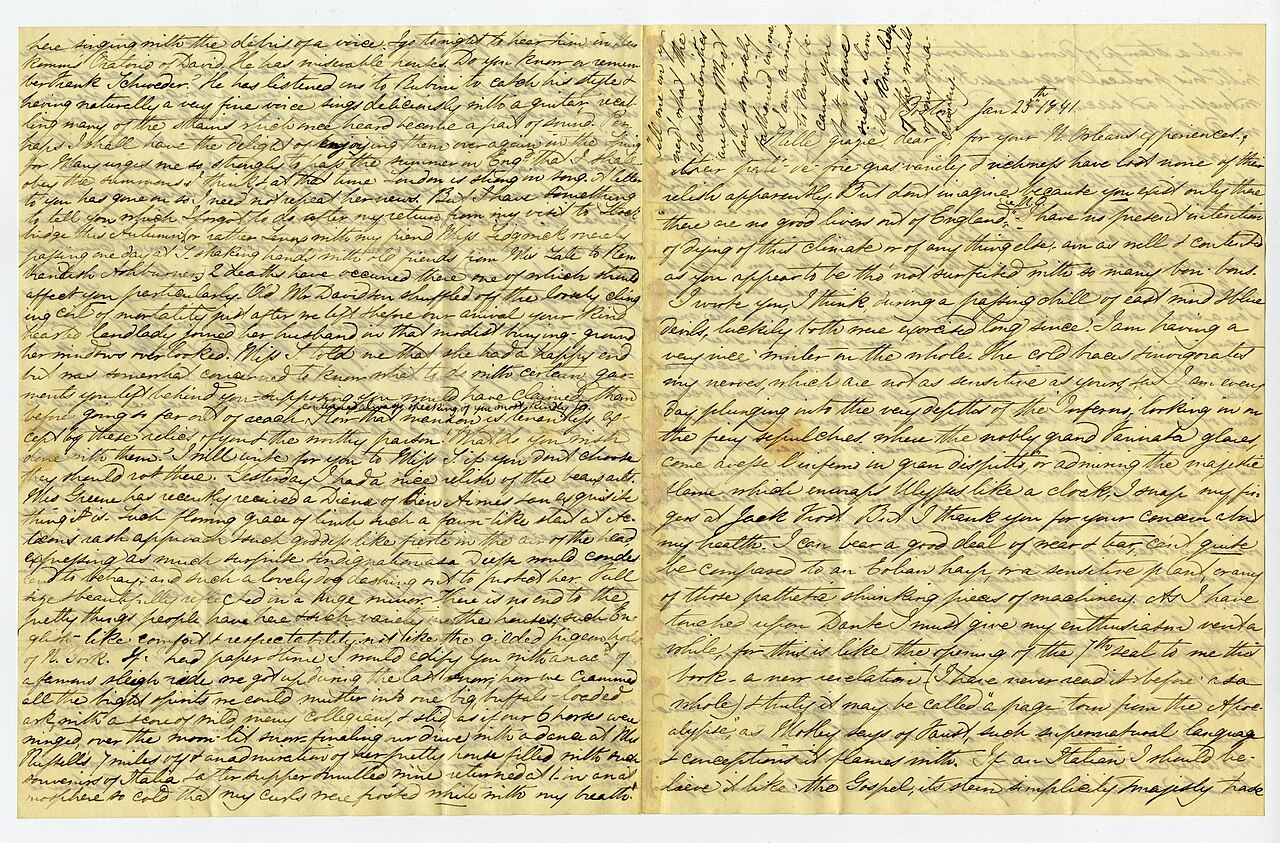 here singing with the débris of a voice. I go tonight to hear him in
Oratorio of David. He has miserable houses. Do you know or remem
ber Frank Schroder. He has listened in to Rubini to catch his style &
having naturally a very fine voice sings deliciously with a guitar recal
ling many of the strains which once heard became a part of sound. Per
haps I shall have the delight of enjoying them over again in the Spring
for Mary urges me so strongly to pass the summer in Eng that I shall
obey the summons I think at the time. is strong in song. A letter
to you has gone on so I need not repeat her news. But I have something
to tell you which I forgot to do after my return from my visit to Stock
bridge this Autumn (or rather Lenox with my friend Miss Sedgwick, merely
passing one day at S. shaking hands with old friends from Mrs Tate to
Ashburner) 2 deaths have occurred there one of which must
affect you particularly. Old Mr Davidson shuffled off the loosely cling
ing coil of mortality just after we left & before our arrival your kind
hearted landlady joined her husband in that modest burying-ground
her windows overlooked. Miss T told me that she had a happy end
but was somewhat concerned to know what to do with certain gar
ments you left behind you supposing you would have claimed them
before going so far out of reach. Now that mansion is tenantless ex
(she was always speaking of you most kindly)
cept by these relics of yours & the worthy parson. What do you wish
done with them. I will write for you to Miss T if you don't choose
they should rot there. Yesterday I had a nice relish of the beaux arts.
Mrs Greene has recently received a Diana of Arimes son exquisite
thing it is. Such flowing grace of limb such a fawn-like start at Ac
taeons rash approach such goddess like fierté in the air of the head
expressing as much surprise & indignation as a Deesse would conde
scend to betray, and such a lovely dog dashing out to protect her. Full
size & beautifully reflected in a huge mirror. There is no end to the
pretty things people have here & such varieties are the houses, such En
glish-like comfort & respectability, not like the ci-coled pigeon holes
of N. York. If I had paper & time I would edify you with an acct of
a famous sleigh ride we got up during the last snow, how we crammed
all the bright spirits we could muster into one big buffalo-loaded
ark with a score of wild merry collegians, & sled as if our 6 horses were
winged over the moon-lit snow, finaling our drive with a dance at Mrs
Russells 7 miles off & an admiration of her pretty house filled with such
souvenirs of Italia & after supper & mulled wine returned at 1 in an at
mosphere so cold that my curls were frosted white with my breath.
Jan 25th 1841
Mille grazie, dear for your N. Orleans experiences;
their paté de foie gras variety & richness have lost none of their
relish apparently. But don't imagine because you exist only there
there are no good livers out of England. I have no present intention
of dying of this climate or of any thing else, am as well & contented
as you appear to be tho not surfeited with so many bon-bons.
I wrote you, I think during a passing chill of east wind & blue
devils, luckily both were exorcised long since. I am having a
very nice winter on the whole. The cold braces & invigorates
my nerves, which are not as sensitive as yours, but I am every
day plunging into the very depths of the Inferno, looking in on
the fiery sepulchres, where the nobly grand Farinata glares
come avesse l'inferno in gran dispitto, or admiring the majestic
flame which enwraps Ulysses like a cloak, I snap my fin
gers at Jack Frost. But I thank you for your concern abt
my health. I can bear a good deal of wear & tear, can't quite
be compared to an Eolian harp, or a sensitive plant, or any
of those pathetic shrinking pieces of machinery. As I have
touched upon Dante I must give my enthusiasm vent a
while, for this is like the opening of the 7th seal to me this
book - a new revelation (I have never read it before as a
whole) & truly it may be called "a page torn from the Apoc
alypse," as Motley says of Faust, such supernatural language
& conceptions it flames with. If an Italian I should be-
lieve it like the Gospel, its stern simplicity & majesty have